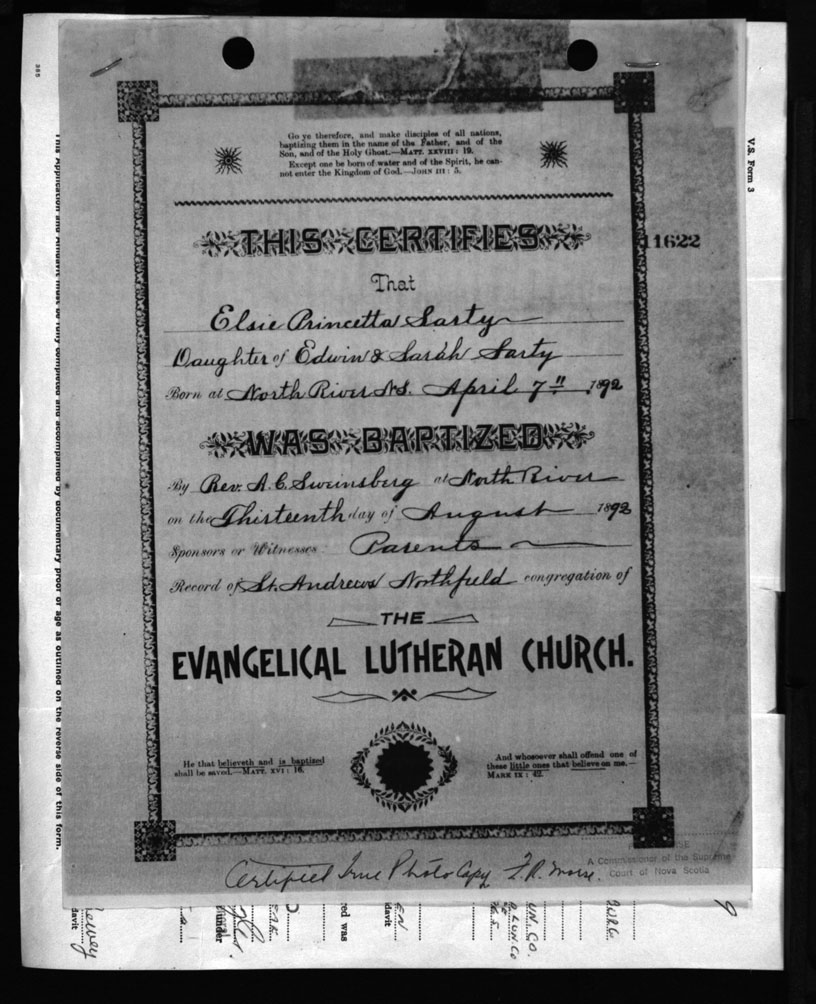 385
V.S. Form 3
Go ye therefore, and make disciples of all nations,
baptizing them in the name of the Father, and of the
Son, and of the Holy Ghost.—MATT. XXVIII: 19.
Except one be born of water and of the Spirit, he can-
not enter the Kingdom of God.—JOHN III: 5.
THIS CERTIFIES
11622
That
Elsie Princetta Sarty
Daughter of Edwin & Sarah Sarty
Born at North River N.S. April 7" 1892
WAS BAPTIZED
By Rev. A. C. Sweinsberg at North River
on the Thirteenth day of August 1892
Sponsors or Witnesses Parents
Record of St. Andrews Northfield congregation of
THE
EVANGELICAL LUTHERAN CHURCH.
He that believeth and is baptized
shall be saved.—MATT. XVI: 16.
And whosoever shall offend one of
these little ones that believe on me.—
MARK IX: 42.
A Commissioner of the Supreme
Court of Nova Scotia
Certified True Photo Copy F. R. Morse.
This Application and Affidavit must be fully completed and accompanied by documentary proof of age as outlined on the reverse side of this form.
davit
under
red was
davit
UN. CO.
9